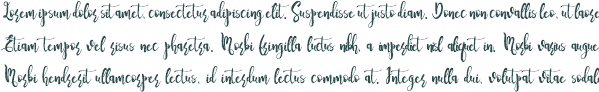 Lorem ipsum dolor sit amet, consectetur adipiscing elit. Suspendisse ut justo diam. Donec non convallis leo, ut laore
Etiam tempor vel risus nec pharetra. Morbi fringilla luctus nibh, a imperdiet nisl aliquet in. Morbi varius augue
Morbi hendrerit ullamcorper lectus, id interdum lectus commodo at. Integer nulla dui, volutpat vitae sodal